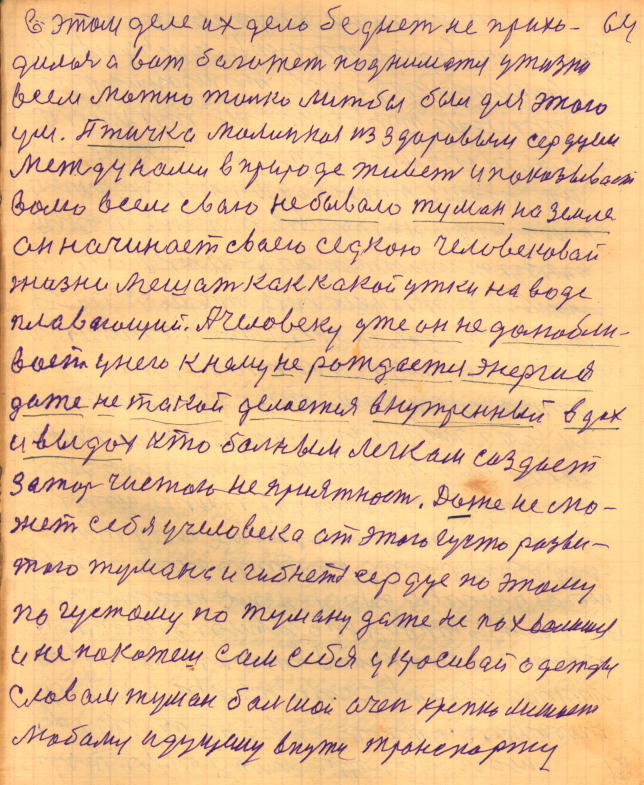 В этом деле их дело беднет не прихо- 64
дилос а вот багажет поднимается у жизни
всем можно толко литбы был для этого
ум. Птичка малинкая из здоровым сердцем
между нами в природе живет и показывает
волю всем сваю не бывало туман на земле
он начинает своею седкою человековай
жизни мешат как какой утки на воде
плавающий. А человеку уже он не данобли-
вает у него к нему не рождается энергия
даже не такой делается внутренный вдох
и выдох кто болным легкам создает
затор чистого неприятност. Даже не мо-
жет себя у человека от этого густо разви-
того тумана и гибнет сердце по этому
по густому по туману даже не
и не покажеш сам себя украсивай одежды
словам туман балшой очен крепко мешает
любому идущему в пути транспорту